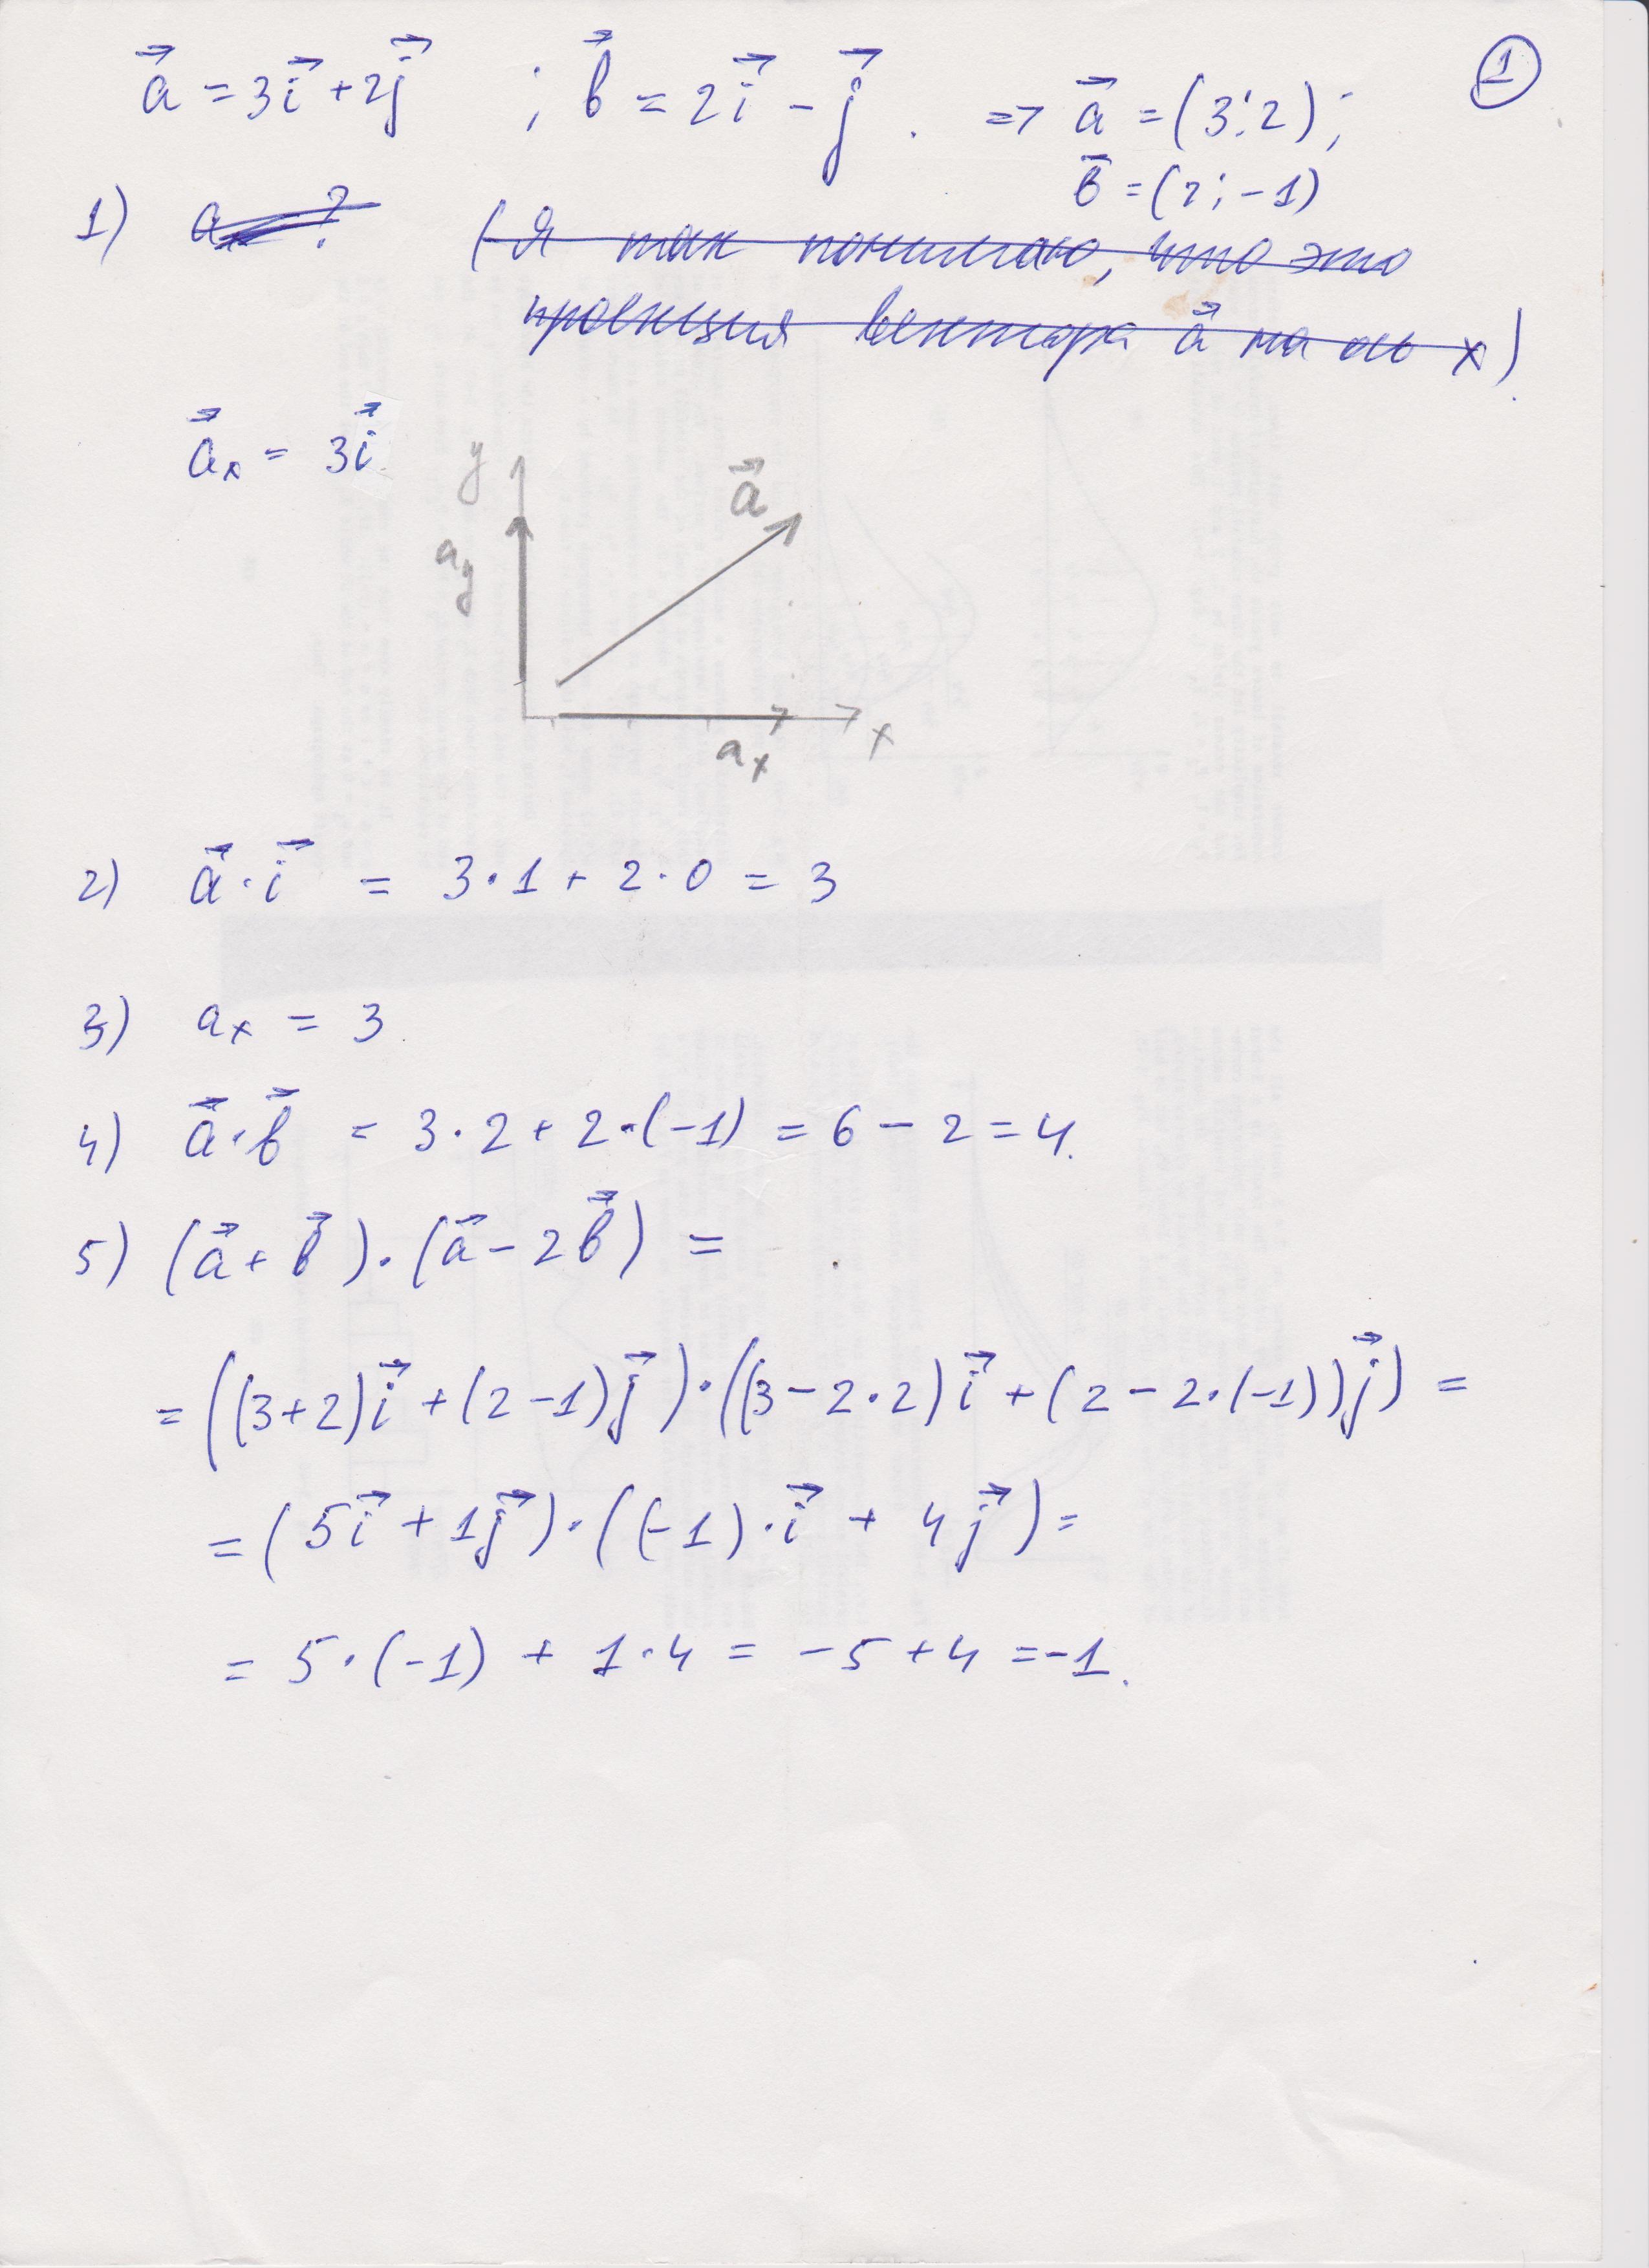 a⃗ = 3i⃗ + 2j⃗ ; b⃗ = 2i⃗ - j⃗ . => a⃗ = (3; 2);
①
b⃗ = (2; -1)
1) aₓ ? (Я так понимаю, что это
проекция вектора a⃗ на ось x).
a⃗ₓ = 3i⃗
y
a⃗
a_y
x
aₓ
2) a⃗ · i⃗ = 3·1 + 2·0 = 3
3) aₓ = 3
4) a⃗ · b⃗ = 3·2 + 2·(-1) = 6 - 2 = 4.
5) (a⃗ + b⃗)·(a⃗ - 2b⃗) =
= ((3+2)i⃗ + (2-1)j⃗)·((3-2·2)i⃗ + (2-2·(-1))j⃗) =
= (5i⃗ + 1j⃗)·((-1)·i⃗ + 4j⃗) =
= 5·(-1) + 1·4 = -5 + 4 = -1.